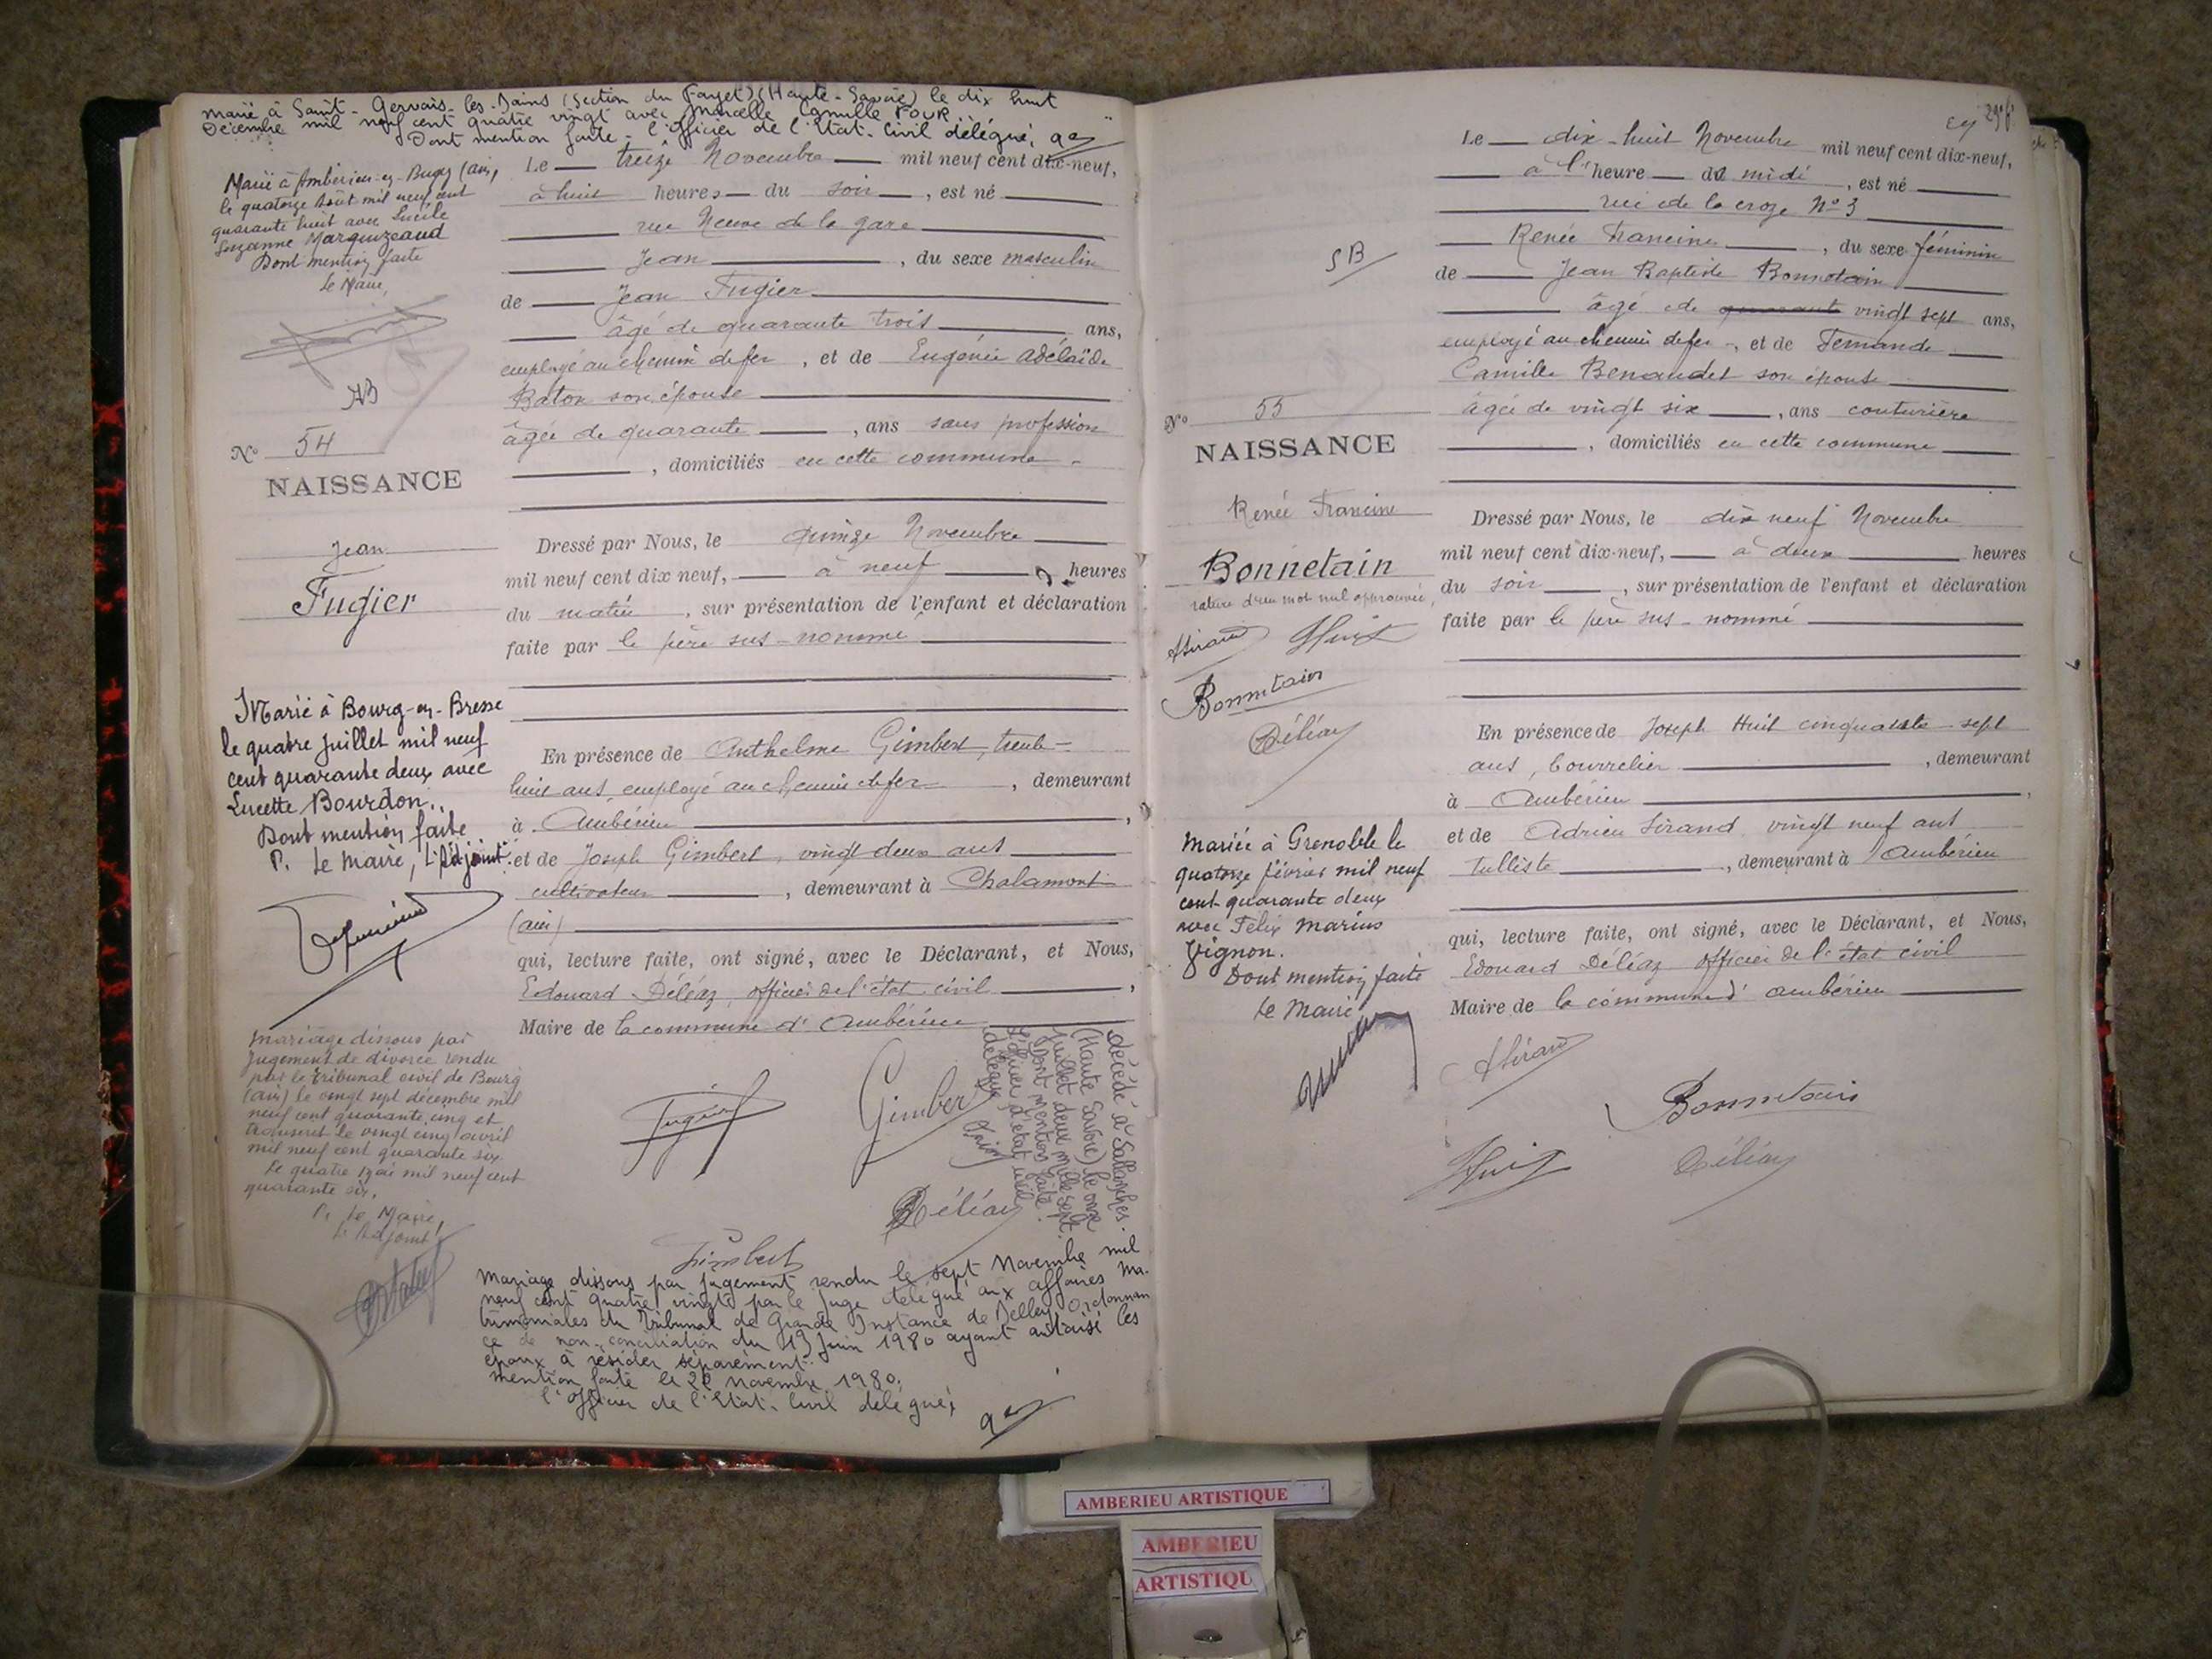 marié à Saint-Gervais-les-Bains (Section du Fayet) (Haute-Savoie) le dix huit
Décembre mil neuf cent quatre vingt avec Marcelle Camille FOUR
Dont mention faite - l'Officier de l'Etat-Civil délégué,
Marié à Ambérieu-en-Bugey (ain)
le quatorze août mil neuf cent
quarante huit avec Lucile
Suzanne Marquizeaud
Dont mention faite
Le Maire,
AB
N° 54
NAISSANCE
Jean
Fugier
Marié à Bourg-en-Bresse
le quatre juillet mil neuf
cent quarante deux avec
Lucette Bourdon.
Dont mention faite
P. Le Maire, l'Adjoint:
Mariage dissous par
jugement de divorce rendu
par le tribunal civil de Bourg
(ain) le vingt sept décembre mil
neuf cent quarante cinq et
transcrit le vingt cinq avril
mil neuf cent quarante six.
Le quatre mai mil neuf cent
quarante six,
P. Le Maire,
L'Adjoint,
Le treize Novembre mil neuf cent dix-neuf,
à huit heures du soir, est né
rue Neuve de la gare
Jean, du sexe masculin
de Jean Fugier
âgé de quarante trois ans,
employé au chemin de fer, et de Eugénie Adélaïde
Baton son épouse
âgée de quarante, ans sans profession
, domiciliés en cette commune.
Dressé par Nous, le quinze Novembre
mil neuf cent dix neuf, à neuf heures
du matin, sur présentation de l'enfant et déclaration
faite par le père sus-nommé
En présence de Anthelme Gimbert, trente-
huit ans, employé au chemin de fer, demeurant
à Ambérieu,
et de Joseph Gimbert, vingt deux ans
cultivateur, demeurant à Chalamont
(ain)
qui, lecture faite, ont signé, avec le Déclarant, et Nous,
Edouard Déléaz, officier de l'état civil,
Maire de la commune d'Ambérieu
Fugier
Gimbert
Déléaz
Gimbert
décédé à Sallanches
(Haute Savoie) le onze
juillet deux mille sept
Dont mention faite.
l'officier d'état civil
délégué
Mariage dissous par jugement rendu le sept Novembre mil
neuf cent quatre vingts par le juge délégué aux affaires ma-
trimoniales du Tribunal de Grande Instance de Belley, ordonnan
ce de non-conciliation du 13 Juin 1980 ayant autorisé les
époux à résider séparément.
mention faite le 22 novembre 1980.
l'Officier de l'Etat-Civil délégué,
29
SB
N° 55
NAISSANCE
Renée Francine
Bonnetain
rature d'un mot nul approuvée,
ASirand Huit
Bonnetain
Déléaz
Mariée à Grenoble le
quatorze février mil neuf
cent quarante deux
avec Félix Marius
Vignon.
Dont mention faite
Le Maire
Le dix-huit Novembre mil neuf cent dix-neuf,
à l'heure de midi, est né
rue de la croze N° 3
Renée Francine, du sexe féminin
de Jean Baptiste Bonnetain
âgé de quarante vingt sept ans,
employé au chemin de fer, et de Fernande
Camille Benaudet son épouse
âgée de vingt six, ans couturière
, domiciliés en cette commune
Dressé par Nous, le dix neuf Novembre
mil neuf cent dix-neuf, à deux heures
du soir, sur présentation de l'enfant et déclaration
faite par le père sus-nommé
En présence de Joseph Huit cinquante-sept
ans, bourrelier, demeurant
à Ambérieu,
et de Adrien Sirand, vingt neuf ans
tulliste, demeurant à Ambérieu
qui, lecture faite, ont signé, avec le Déclarant, et Nous,
Edouard Déléaz officier de l'état civil
Maire de la commune d'Ambérieu
ASirand
Bonnetain
Huit
Déléaz
AMBERIEU ARTISTIQUE
AMBERIEU
ARTISTIQU